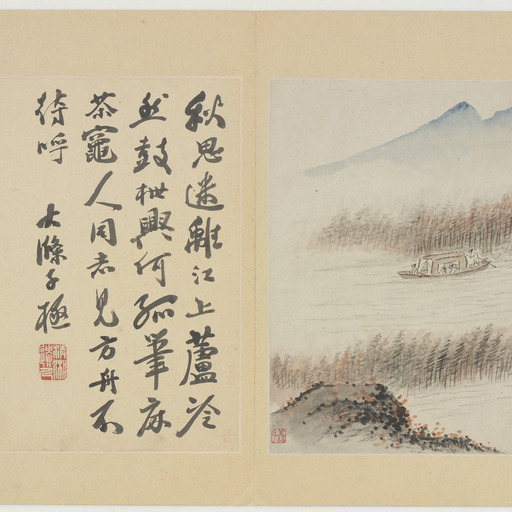 秋思迷離江上蘆冷
然鼓枻興何孤筆床
茶竈人同志見方舟不
待呼 大滌子極